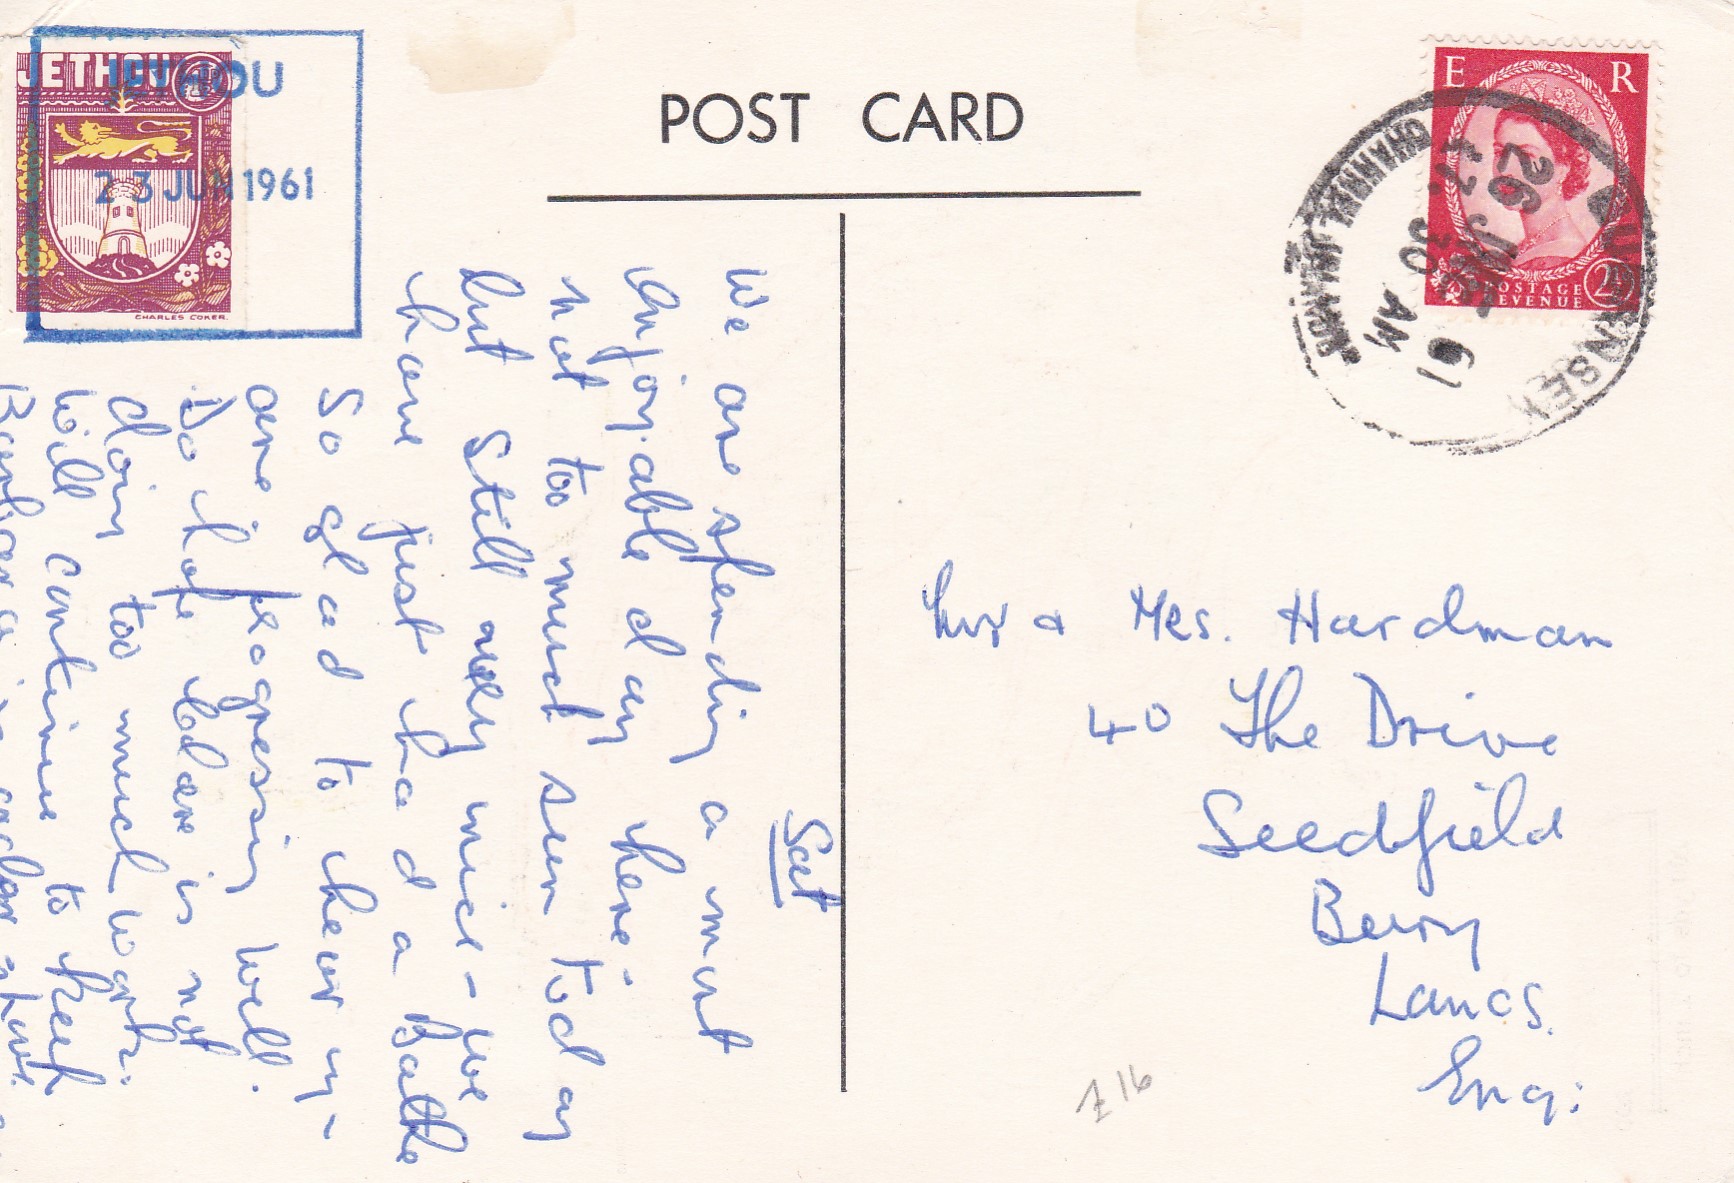 JETHOU
JETHOU
23 JUN 1961
CHARLES COKER.
POST CARD
E R
POSTAGE
REVENUE
2½
GUERNSEY
CHANNEL ISLANDS
26 JUN 61
30 AM
Sat
We are spending a most
enjoyable day here -
not too much sun today
but still very nice - we
have just had a bathe
So glad to hear you
are progressing well.
Do hope Clare is not
doing too much work.
Will continue to keep
Barbara is
Mr & Mrs. Hardman
40 The Drive
Seedfield
Bury
Lancs.
Eng:
£16